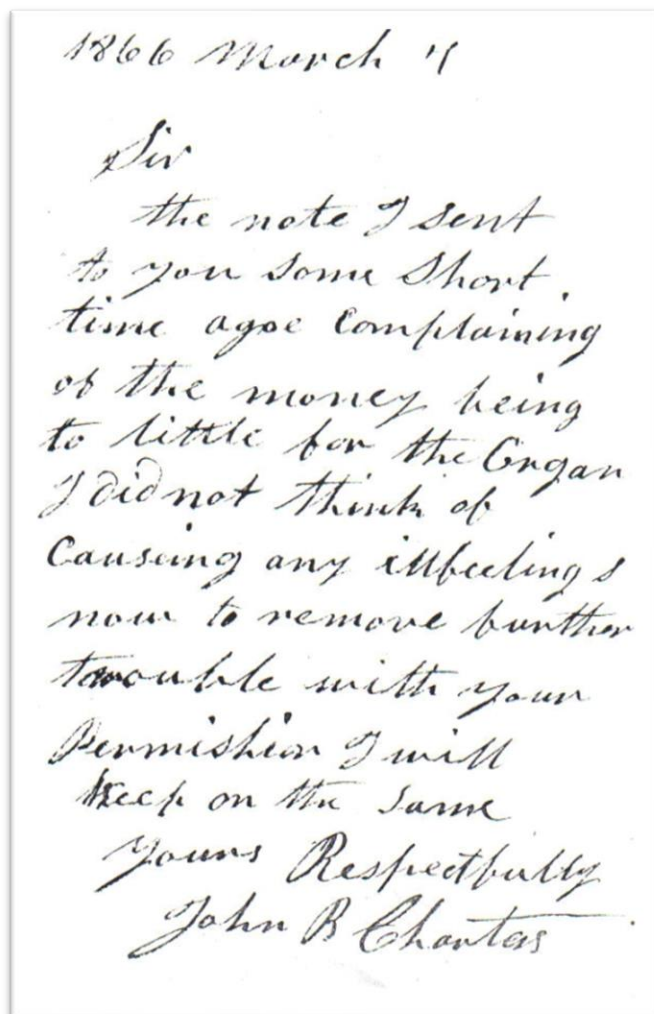 1866 March 4
Sir
the note I sent
to you some short
time agoe Complaining
of the money being
to little for the Organ
I did not think of
Causeing any illfeelings
now to remove further
trouble with your
Permishion I will
Keep on the same
Yours Respectfully
John B Charters